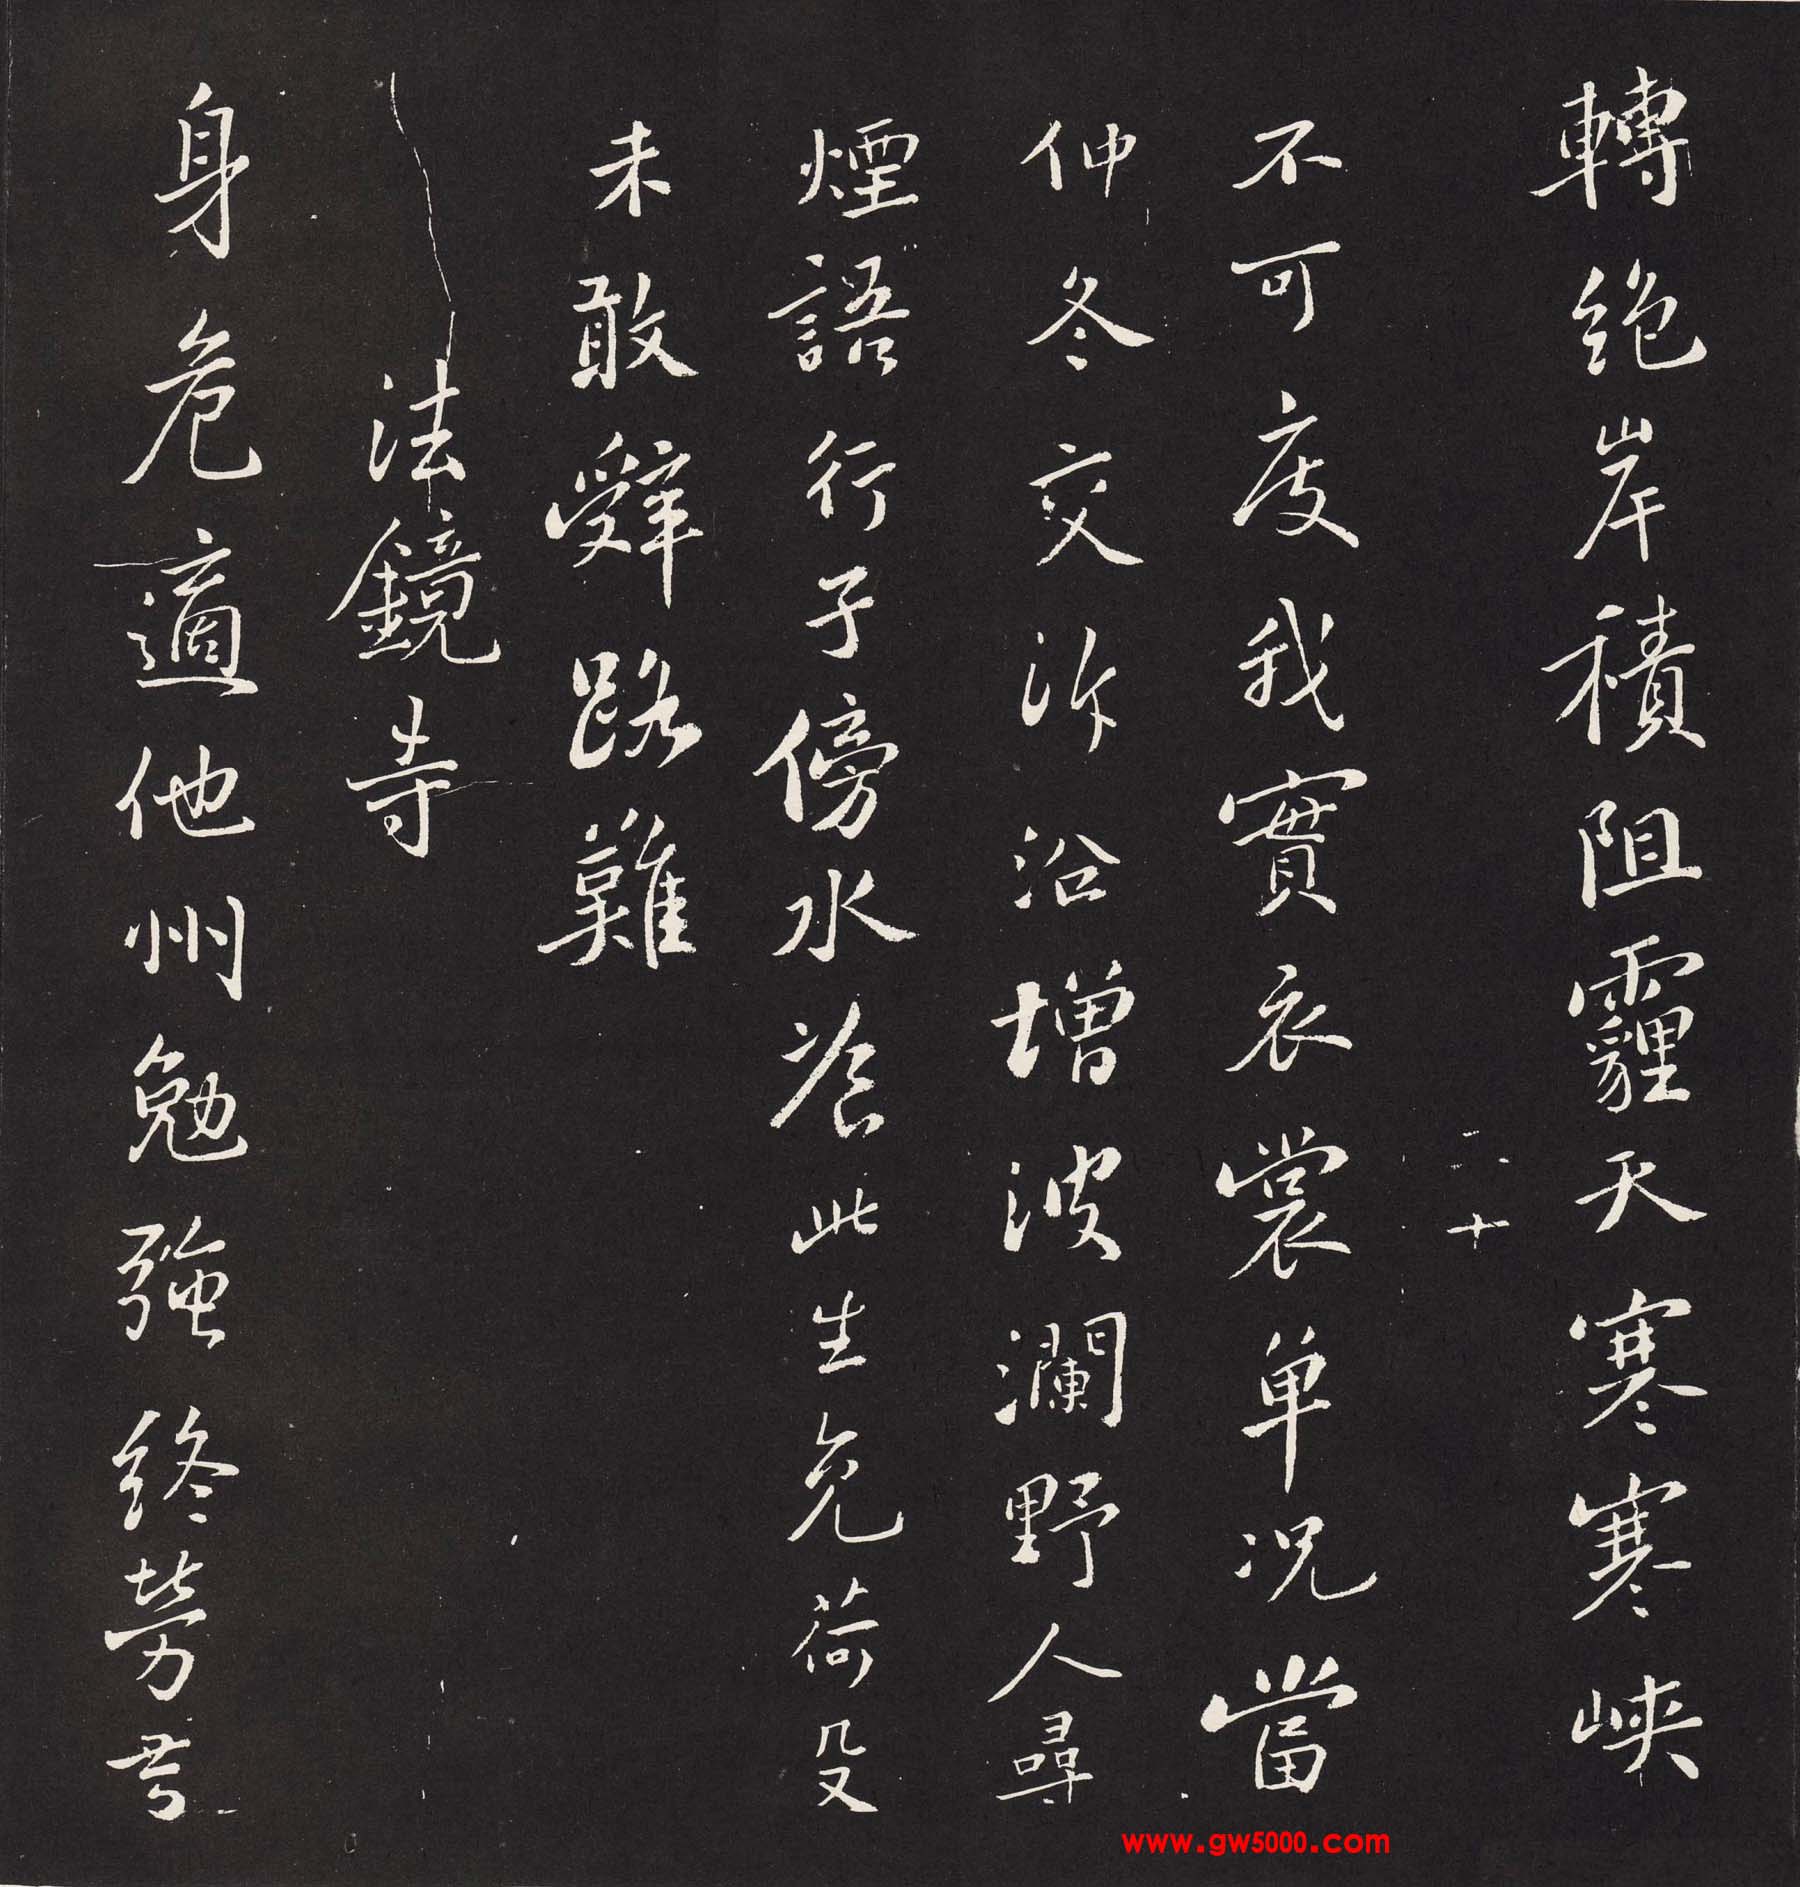 轉絕岸積阻霾天寒寒峽
二十
不可度我實衣裳單况當
仲冬交泝沿增波瀾野人尋
煙語行子傍水飡此生免荷殳
未敢辤路難
法鏡寺
身危適他州勉強終勞苦
www.gw5000.com